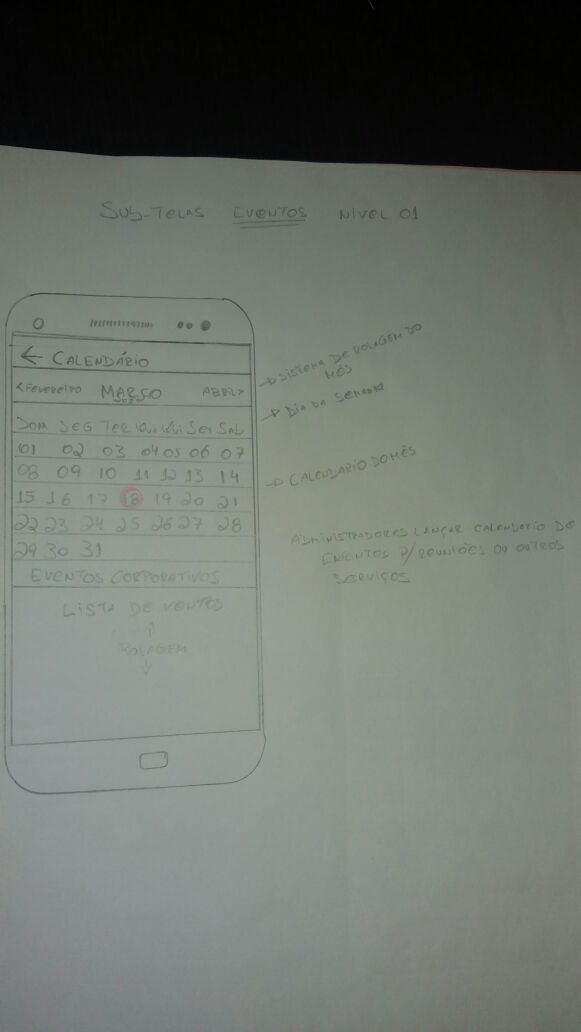 SUB-TELAS EVENTOS NIVEL 01
← CALENDÁRIO
<FEVEREIRO MARÇO ABRIL>
DOM SEG TER QUA QUI SEX SAB
01 02 03 04 05 06 07
08 09 10 11 12 13 14
15 16 17 18 19 20 21
22 23 24 25 26 27 28
29 30 31
EVENTOS CORPORATIVOS
LISTA DE VENTOS
↑
ROLAGEM
↓
→ SISTEMA DE ROLAGEM DO
MÊS
→ DIA DA SEMANA
→ CALENDARIO DO MÊS
ADMINISTRADORES LANÇAR CALENDARIO DE
EVENTOS P/ REUNIÕES OU OUTROS
SERVIÇOS